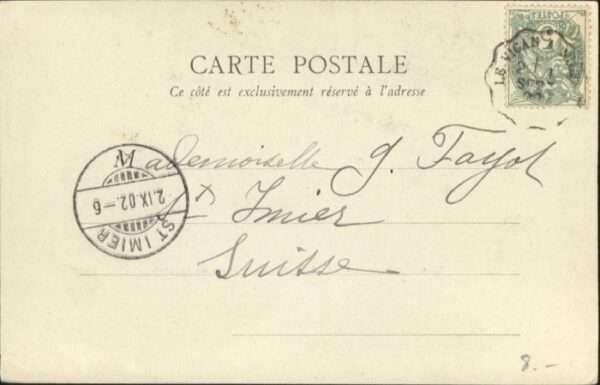 CARTE POSTALE
Ce côté est exclusivement réservé à l'adresse
LE VIGAN
Mademoiselle J. Fayot
St Imier
Suisse
2.IX.02.–6
ST IMIER
8.–